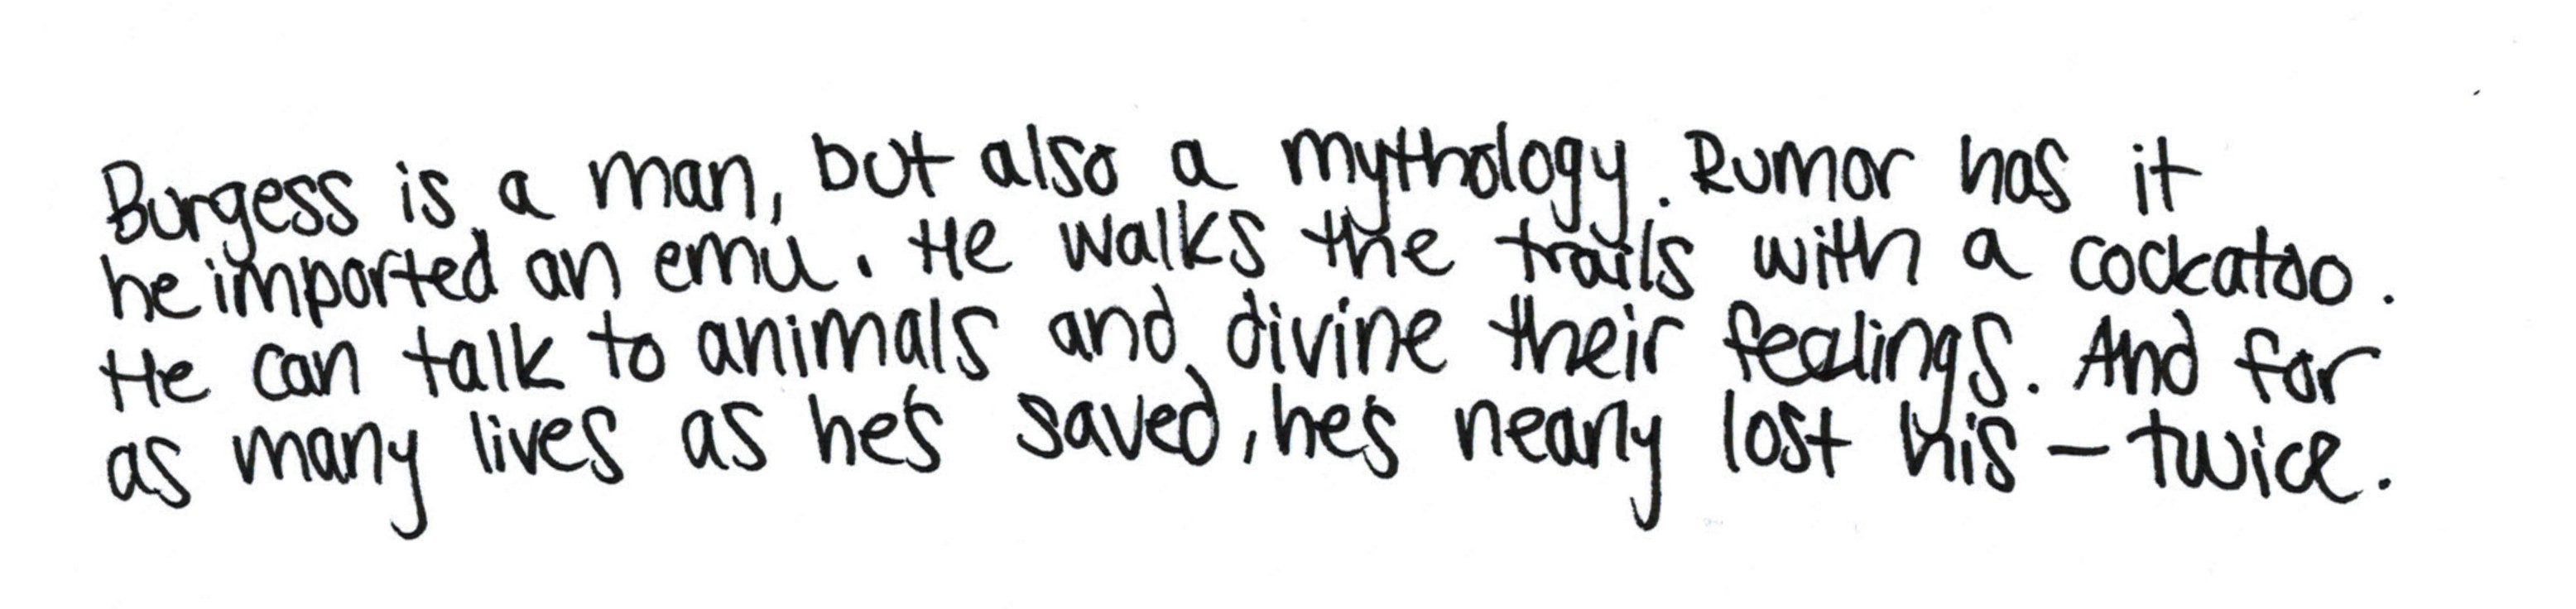 Burgess is a man, but also a mythology. Rumor has it
he imported an emu. He walks the trails with a cockatoo.
He can talk to animals and divine their feelings. And for
as many lives as he's saved, he's nearly lost his – twice.